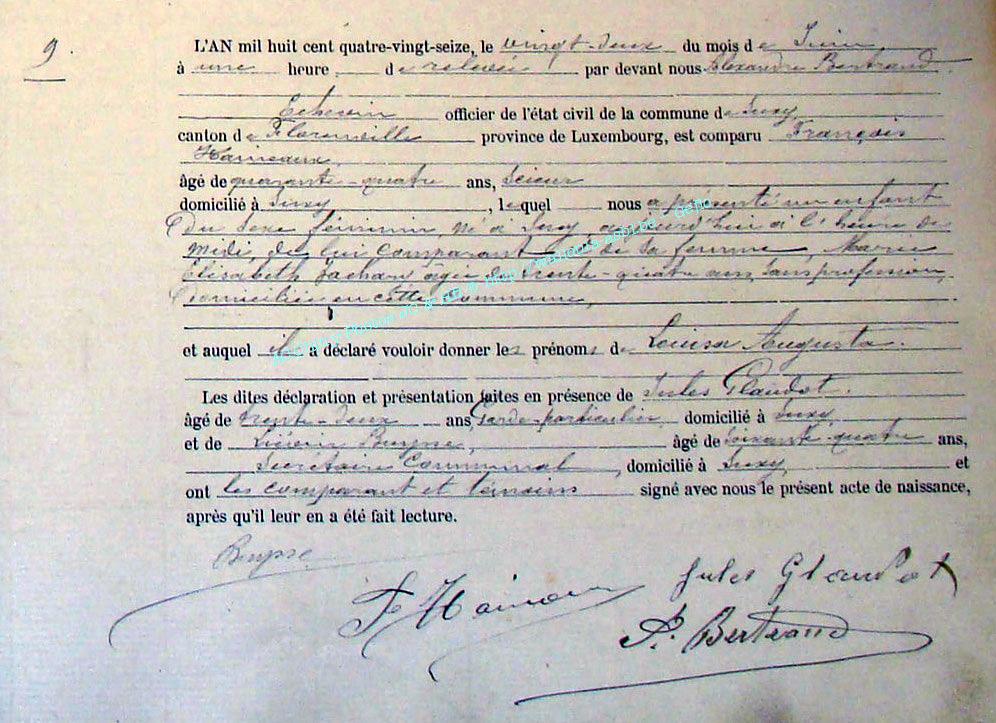 9.
L'AN mil huit cent quatre-vingt-seize, le vingt-deux du mois de Juin
à une heure de relevée par devant nous Alexandre Bertrand
Echevin officier de l'état civil de la commune de Suxy,
canton de Florenville province de Luxembourg, est comparu François
Hainaux,
âgé de quarante-quatre ans, Scieur
domicilié à Suxy, lequel nous a présenté un enfant
Du Sexe féminin, né à Suxy, aujourd'hui à l'heure de
midi, de lui comparant et de sa femme, Marie
Elisabeth agée de trente-quatre ans, sans profession,
Domiciliée en cette commune,
et auquel il a déclaré vouloir donner les prénoms de Louisa Augusta.
Les dites déclaration et présentation faites en présence de Jules Glaudot.
âgé de trente-deux ans, Garde-particulier, domicilié à Suxy,
et de âgé de Soixante-quatre ans,
Secrétaire Communal, domicilié à Suxy, et
ont les comparant et témoins signé avec nous le présent acte de naissance,
après qu'il leur en a été fait lecture.
F Hainaux Jules Glaudot
Bertrand